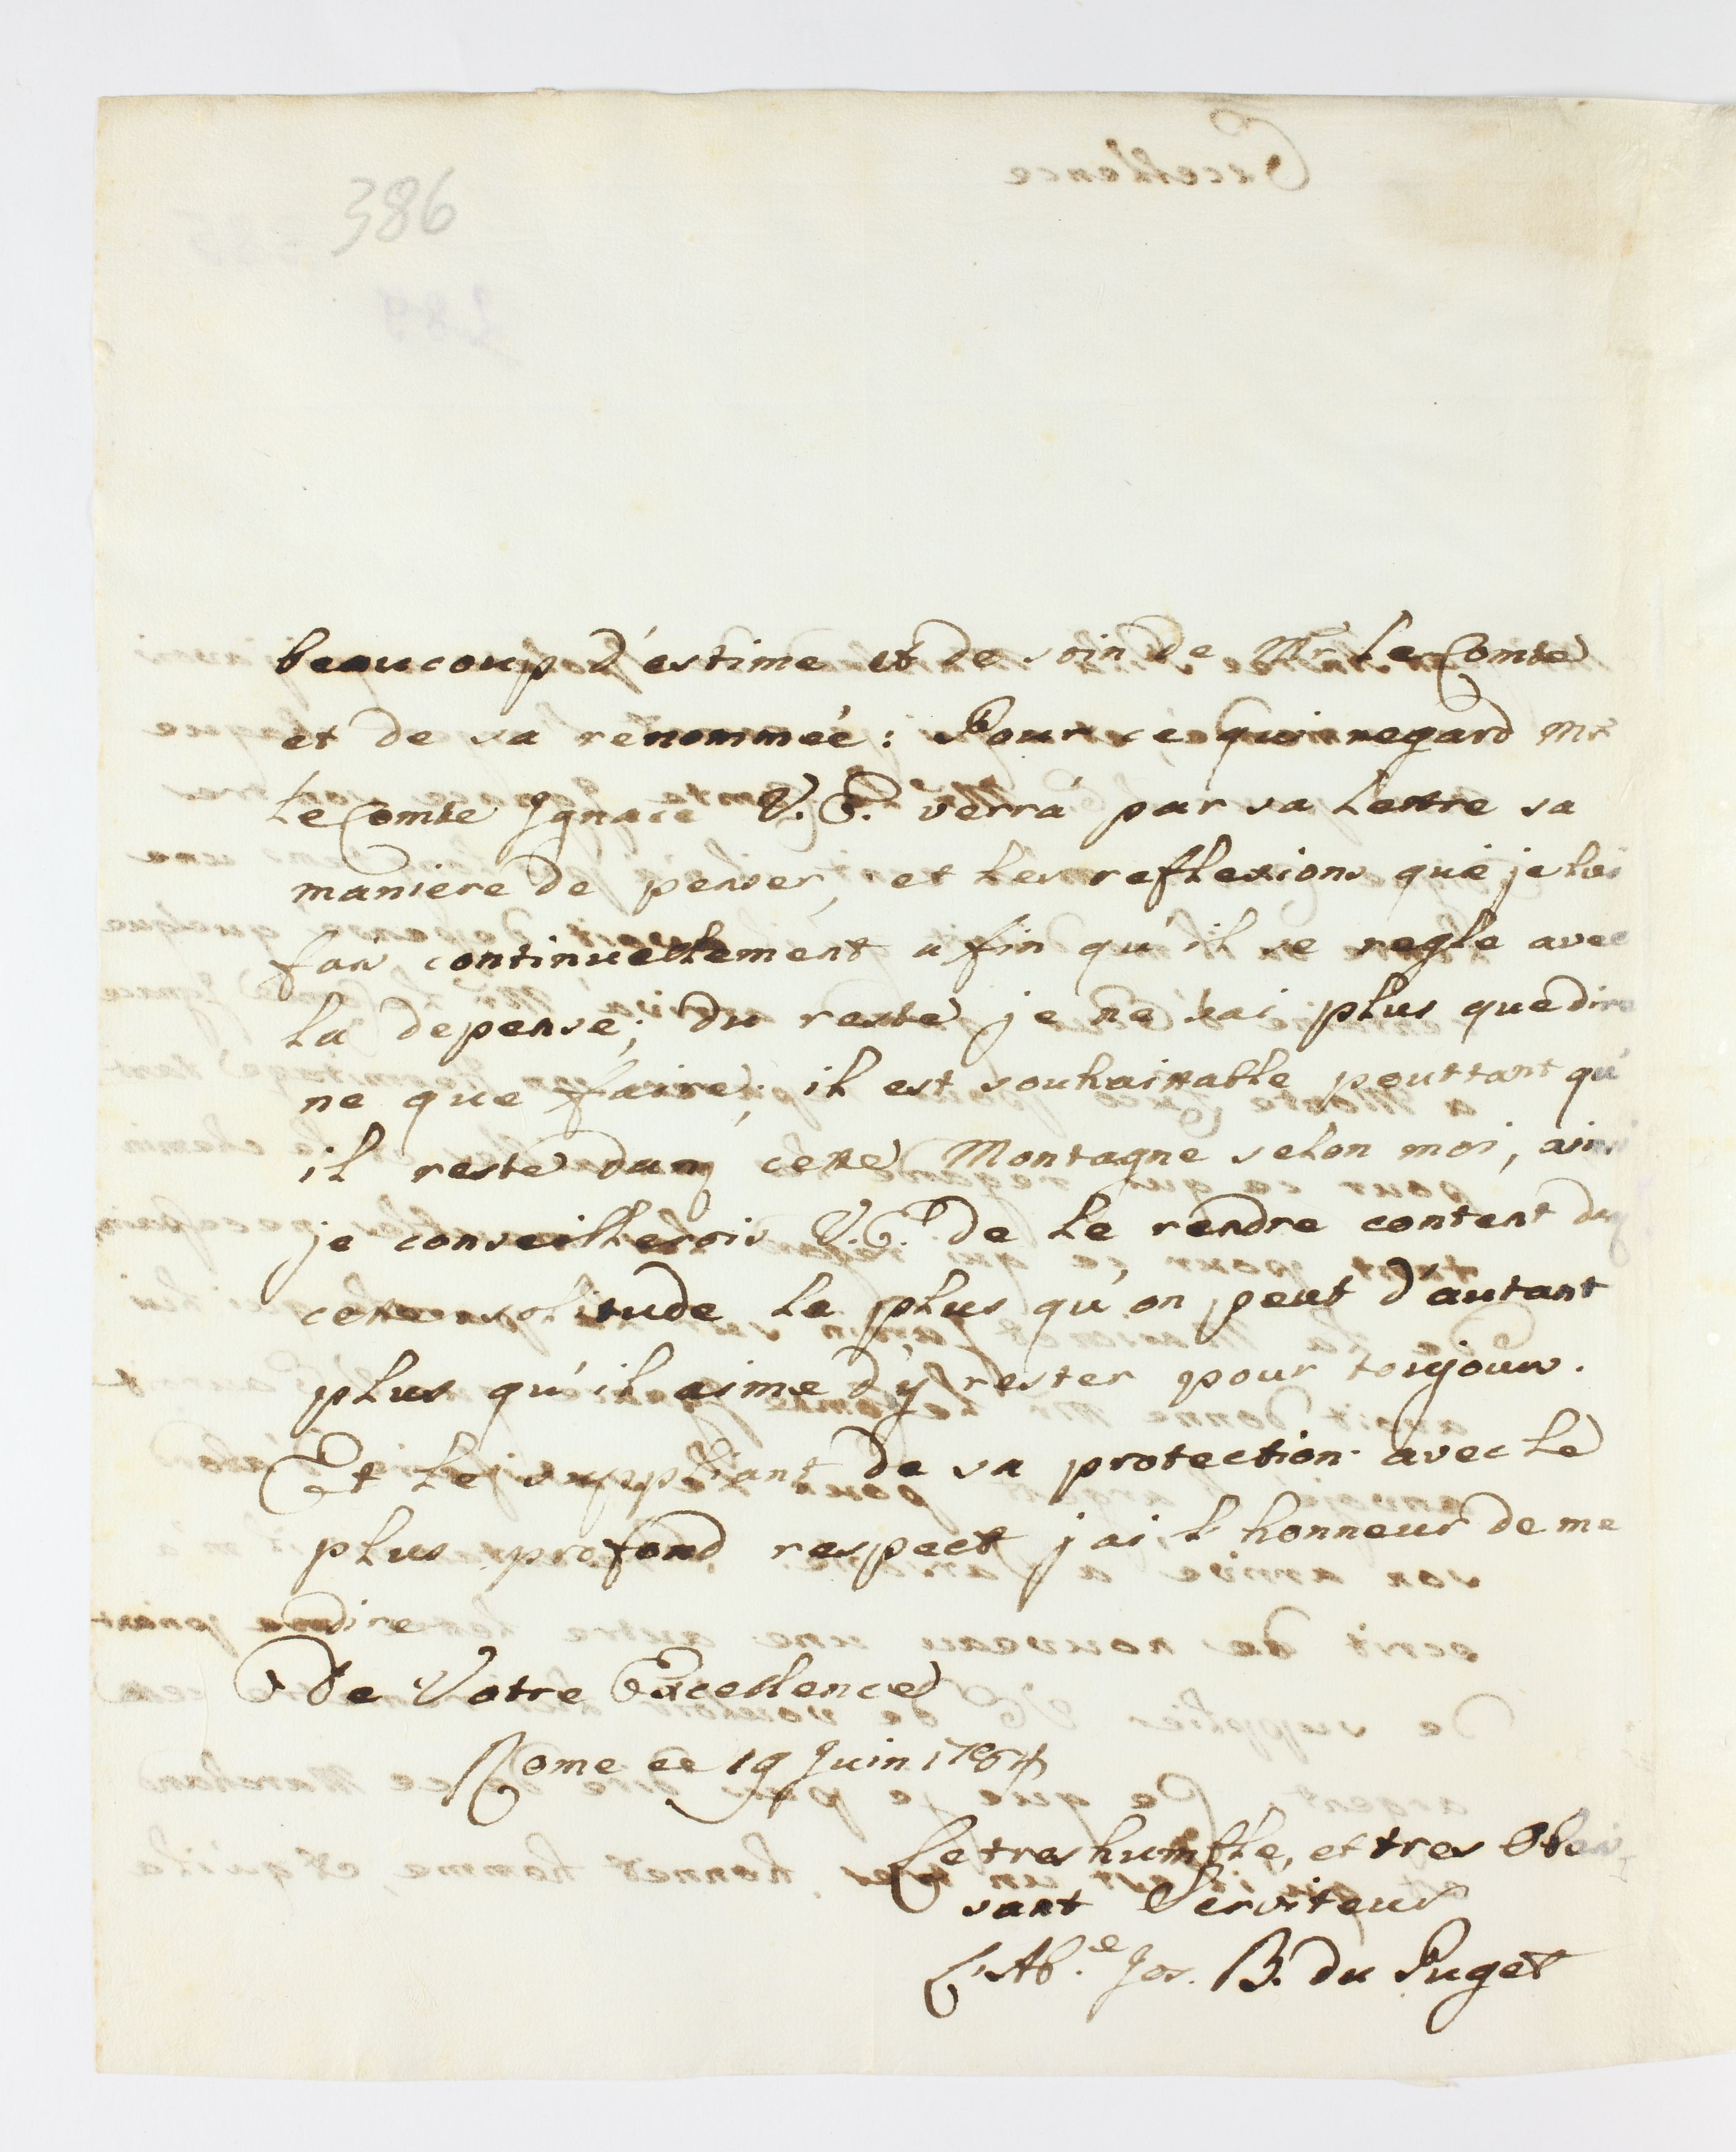 386
beaucoup d'estime et de soin de Mr le Comte
et de sa renommeé: Pour ce qui regard Mr
le Comte Ignace V. E. verrà par sa lettre sa
maniere de penser, et les reflexions que je lui
fais continuellement afin qu'il se regle avec
la depense; du reste je ne sai plus que dire
ne que faire; il est souhaittable pourtant qu'
il reste dans cette Montagne selon moi, ainsi
je conseillerois V. E. de le rendre content dans
cette solitude le plus qu'on peut d'autant
plus qu'il aime d'y rester pour toujours.
Et le suppliant de sa protection avec le
plus profond respect j'ai l'honneur de me
dire
De Votre Excellence
Rome ce 19 Juin 1764
Le tres humble, et tres Obei-
sant Serviteur
L'Ab.e Jos. B. du Puget